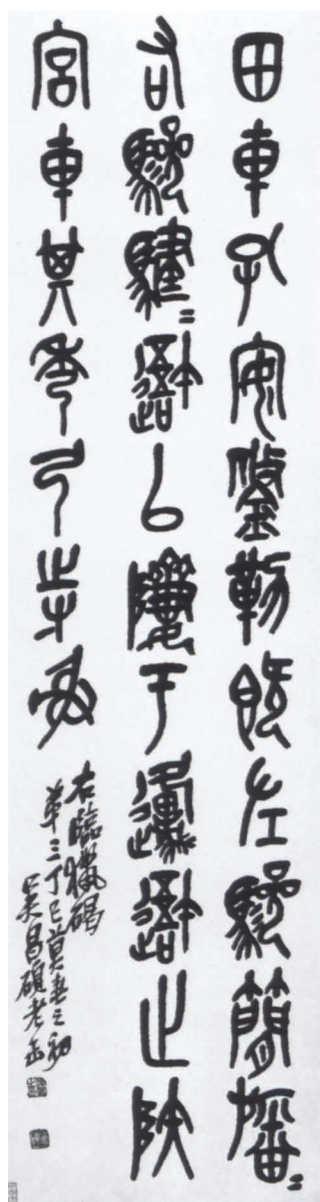 田車孔安鋚勒既左驂簡旛=
右驂騝=䢔以隮于邍䢔止陝
宮車其秀弓寺射
右臨獵碣
第三丁巳莫春之初
吳昌碩老缶